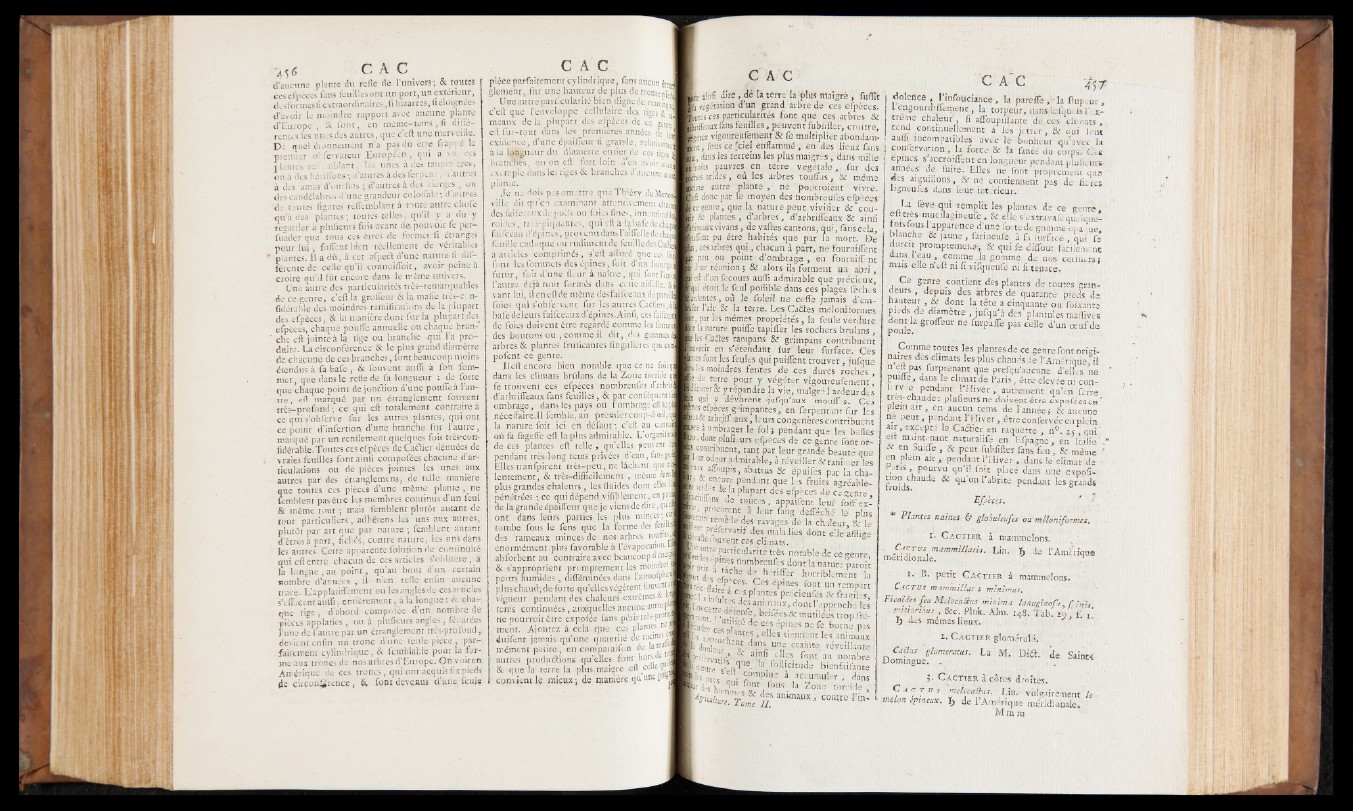 456 C A C C A C
d'aucune plante du reſte de l'univers; & toutes
ces eſpeces ſans feuilles ont un port, un extérieur,
des formes ſi extraordinaires, ſi bizarres, ſi éloignées
d'avoir le moindre rapport avec aucune plante
d'Europe, & ſont, en même-tems, ſi diffé-
rentes les unes des autres, que c'eſt une merveille.
De quel étonnement n'a pas dû être frappé le
premier obſervateur Européen, qui a vu ces
plantes
ou à des hériſſons; d'autres à des ſerpens; d'autres
à des amas d'ourſins; d'autres à des cierges, ou
des candélabres d'une grandeur coloſſale; d'autres
de toutes figures reſſemblant à toute autre choſe
qu'à des plantes; toutes telles, qu'il y a du y
regarder à pluſieurs fois avant de pouvoir ſe per-
ſuader que tous ces êtres de formes ſi étranges
pour lui, fuſſent bien réellement de véritables
plantes. Il a dû, à cet aſpect d'une nature ſi dif-
férente de celle qu'il connoiſſoit, avoir peine à
croire qu'il fût encore dans le même univers.
Une autre des particularités très-remarquables
de ce genre, c'eſt la groſſeur & la maſſe très-con-
ſidérable des moindres ramifications de la plupart
des eſpèces, & la manière dont ſur la plupart des
eſpèces, chaque pouſſe annuelle ou chaque bran-
che eſt jointe à la tige ou branche qui l'a pro-
duite. La circonférence & le plus grand diamètre
de chacune de ces branches, ſont beaucoup moins
étendus à ſa baſe, & ſouvent auſſi à ſon ſom-
met, que dans le reſte de ſa longueur : de ſorte
que chaque point de jonction d'une pouſſe à l'au-
tre, eſt marqué par un étranglement ſouvent
très-profond; ce qui eſt totalement contraire à
ce qui s'obſerve ſur les autres plantes, qui ont
ce point d'inſertion d'une branche ſur l'autre,
marqué par un renflement quelques fois très-con-
ſidérable. Toutes ces eſpèces de Cactier dénuées de
vraies feuilles ſont ainſi compoſées chacune d'ar-
ticulations ou de pièces jointes les unes aux
autres par des étranglemens, de telle manière
que toutes ces pièces d'une même plante, ne
ſemblent pas être les membres continus d'un ſeul
& même tout; mais ſemblent plutôt autant de
tout particuliers, adhérens les uns aux autres,
plutôt par art que par nature; ſemblent autant
d'êtres à part, fichés, contre nature, les uns dans
les autres. Cette apparente ſolution de continuité
qui eſt entre chacun de ces articles s'oblitère, à
la longue, au point, qu'au bout d'un certain
nombre d'années, il n'en reſte enfin aucune
trace. L'applatiſſement ou les angles de ces articles
s'effacent auſſi, entièrement, à la longue; & cha-
que tige, d'abord compoſée d'un nombre de
pièces applaties, ou à pluſieurs angles, ſéparées
l'une de l'autre par un étranglement très-profond,
devient enfin un tronc d'une ſeule pièce, par-
faitement cylindrique, & ſemblable pour la for-
me aux troncs de nos arbres d'Europe. On voit en
Amérique de ces troncs, qui ont acquis ſix pieds
de circonférence, & ſont devenus d'une ſeule
pièce parfaitement cylindrique, ſans aucun
glement, ſur une hauteur de plus de
Une autre particularité bien digne de
c'eſt que l'enveloppe cellulaire des tiges &
meaux de la plupart des eſpèces de ce genre,
eſt ſur-tout dans les premières années de leur
exiſtence, d'une épaiſſeur ſi grande, relativement
à la longueur du diamètre entier de ces tiges &
branches, qu'on eſt fort loin d'en avoir
exemple dans les tiges & branches d'aucune autre
plante.
Je ne dois pas omettre que Thiéry de
ville dit qu'en examinant attentivement
des faiſceaux de poils ou ſoies fines,
roides, très-piquantes, qui eſt à la baſe de chaque
faiſceau d'épines, provenu dans l'aiſſelle de chaque
feuille caduque ou rudiment de feuille des Cactiers
à articles comprimés, s'eſt aſſuré que ces
ſont les ſommets des épines, ſoit d'un bourgeon
futur, ſoit d'une fleur à naître, qui ſont
l'autre déjà tout formés dans cette aiſſelle, &
vant lui, il en eſt de même des faiſceaux de
ſoies qui s'obſervent ſur les autres Cactiers,
baſe de leurs faiſceaux d'épines. Ainſi, ces faiſceaux
de ſoies doivent être regardé comme les
des boutons ou, comme il dit, des gemmes
arbres & plantes fruticantes ſingulières qui com-
poſent ce genre.
Il eſt encore bien notable que ce ne ſoit
dans les climats brûlans de la Zone torride
ſe trouvent ces eſpèces nombreuſes d'arbres
d'arbriſſeaux ſans feuilles, & par conſéquent
ombrage, dans les pays où l'ombrage eſt le plus
néceſſaire. Il ſemble, au premier coup-d'œil,
la nature ſoit ici en défaut; c'eſt au
où ſa ſageſſe eſt la plus admirable. L'organiſation
de ces plantes eſt telle, qu'elles peuvent
pendant très-long tems privées d'eau, ſans
Elles tranſpirent très-peu; ne lâchent que
lentement, & très-difficilement, même
plus grandes chaleurs, les fluides dont elles ſont
pénétrées; ce qui dépend viſiblement, en
de la grande épaiſſeur que je viens de dire,
ont dans leurs parties les plus minces;
tombe ſous le ſens que la forme des feuilles
des rameaux minces de nos arbres touffus,
énormément plus favorable à l'évaporation. Elles
abſorbent au contraire avec beaucoup
& s'approprient promptement les moindres
peurs humides, diſſéminées dans l'atmoſphère
plus chaud; de ſorte qu'elles végètent ſouvent
vigueur pendant des chaleurs extrêmes &
tems continuées, auxquelles aucune autre
ne pourroit être expoſée ſans périr
ment. Ajoutez à cela que ces plantes ne
duiſent jamais qu'une quantité de matière
mément petite, en comparaiſon de la
autres productions qu'elles ſont hors de
& que la terre la plus maigre eſt celle
convient le mieux; de manière qu'une
C A C C A C 457
ainſi dire, de la terre la plus maigre, ſuffit
végétation d'un grand arbre de ces eſpèces.
Toutes ces particularités font que ces arbres &
ſans feuilles, peuvent ſubſiſter, croître,
vigoureuſement & ſe multiplier abondam-
ment, ſous ce ciel enflammé, en des lieux ſans
dans les terreins les plus maigres, dans mille
pauvres en terre végétale, ſur des
arides, où les arbres touffus, & même
autre plante, ne pourroient vivre.
C'eſt donc par le moyen des nombreuſes eſpèces
ce genre, que la nature peut vivifier & cou-
de plantes, d'arbres, d'arbriſſeaux & ainſi
vivans, de vaſtes cantons, qui, ſans cela,
pu être habités que par la mort. De
ces arbres qui, chacun à part, ne fourniſſent
peu ou point d'ombrage, en fourniſſent
leur réunion; & alors ils forment un abri,
d'un ſecours auſſi admirable que précieux,
qui étoit le ſeul poſſible dans ces plages sèches
où le ſoleil ne ceſſe jamais d'em-
l'air & la terre. Les Cactes méloniformes
par les mêmes propriétés, la ſeule verdure
la nature puiſſe tapiſſer les rochers brulans,
les Cactes rampans & grimpans contribuent
en s'étendant ſur leur ſurface. Ces
ſont les ſeules qui puiſſent trouver, juſque
les moindres fentes de ces dures roches,
de terre pour y végéter vigoureuſement,
& y répandre la vie, malgré l'ardeur des
qui y dévorent juſqu'aux mouſſes. Ces
eſpèces grimpantes, en ſerpentant ſur les
& arbriſſeaux, leurs congénères contribuent
à ombrager le ſol; pendant que les belles
dont pluſieurs eſpèces de ce genre ſont or-
contribuent, tant par leur grande beauté que
leur odeur admirable, à réveiller & ranimer les
aſſoupis, abattus & épuiſés par la cha-
& encore pendant que les fruits agréable-
de la plupart des eſpèces de ce genre,
de toutes, appaiſent leur ſoif ex-
procurent à leur ſang deſſéché le plus
remède des ravages de la chaleur, & le
préſervatif des maladies dont elle afflige
ſouvent ces climats.
autre particularité très-notable de ce genre,
épines nombreuſes dont la nature paroît
à tâche de hériſſer horriblement la
des eſpèces. Ces épines ſont un rempart
à ces plantes précieuſes & fragiles,
inſultes des animaux, dont l'approche les
de cette défenſe, briſées & mutilées trop fré-
L'utilité de ces épines ne ſe borne pas
ces plantes, elles tiennent les animaux
approchent dans une crainte réveillante
douleur, & ainſi elles ſont au nombre
que la ſollicitude bienfaiſante
s'eſt complue à accumuler, dans
qui ſont ſous la Zone torride,
des hommes & des animaux, contre l'in-
Agriculture. Tome II.
dolence, l'inſouciance, la pareſſe, la ſtupeur,
l'engourdiſſement, la torpeur, dans leſquels l'ex-
trême chaleur, ſi aſſoupiſſante de ces climats,
tend continuellement à les jetter, & qui ſont
auſſi incompatibles avec le bonheur qu'avec la
conſervation, la force & la ſanté du corps. Ces
épines s'accroiſſent en longueur pendant pluſieurs
années de ſuite. Elles ne ſont proprement que
des aiguillons, & ne contiennent pas de fibres
ligneuſes dans leur intérieur.
La sève qui remplit les plantes de ce genre,
eſt très-mucilagineuſe, & elle s'extravaſe quelque-
fois ſous l'apparence d'une ſorte de gomme opaque,
blanche & jaune, farineuſe à ſa ſurface, qui ſe
durcit promptement, & qui ſe diſſout facilement
dans l'eau, comme la gomme de nos ceriſiers;
mais elle n'eſt ni ſi viſqueuſe ni ſi tenace.
Ce genre contient des plantes de toutes gran-
deurs, depuis des arbres de quarante pieds de
hauteur, & dont la tête a cinquante ou ſoixante
pieds de diamètre, juſqu'à des plantules maſſives
dont la groſſeur ne ſurpaſſe pas celle d'un œuf de
poule.
Comme toutes les plantes de ce genre ſont origi-
naires des climats les plus chauds de l'Amérique, il
n'eſt pas ſurprenant que preſqu'aucune d'elles ne
puiſſe, dans le climat de Paris, être élevée ni con-
ſervée pendant l'Hiver, autrement qu'en ſerre
très-chaude: pluſieurs ne doivent être expoſées en
plein air, en aucun tems de l'année; & aucune
ne peut, pendant l'Hiver, être conſervée en plein
air, excepté le Cactier en raquette, nº. 25, qui
eſt maintenant naturaliſé en Eſpagne, en Italie
& en Suiſſe, & peut ſubſiſter ſans feu, & même
en plein air, pendant l'Hiver, dans le climat de
Paris, pourvu qu'il ſoit placé dans une expoſi-
tion chaude & qu'on l'abrite pendant les grands
froids.
Eſpèces.
* Plantes naines & globuleuſes ou méloniformes.
1. CACTIER à mammelons.
CACTUS mammillaris. Lin. ♄ de l'Amérique
méridionale.
1. B. petit CACTIER à mammelons.
CACTUS mammillaris minimus.
Ficoïdes ſeu Melocactus minima lanuginoſa, ſpinis
mitioribus, &c. Pluk. Alm. 148. Tab. 29, f. 1.
♄ des mêmes lieux.
2. CACTIER glomérulé.
Cactus glomeratus. La M. Dict. de Saint-
Domingue.
3. CACTIER à côtes droites.
CACTUS melocactus. Lin. vulgairement le
melon épineux. ♄ de l'Amérique méridionale.
M m m